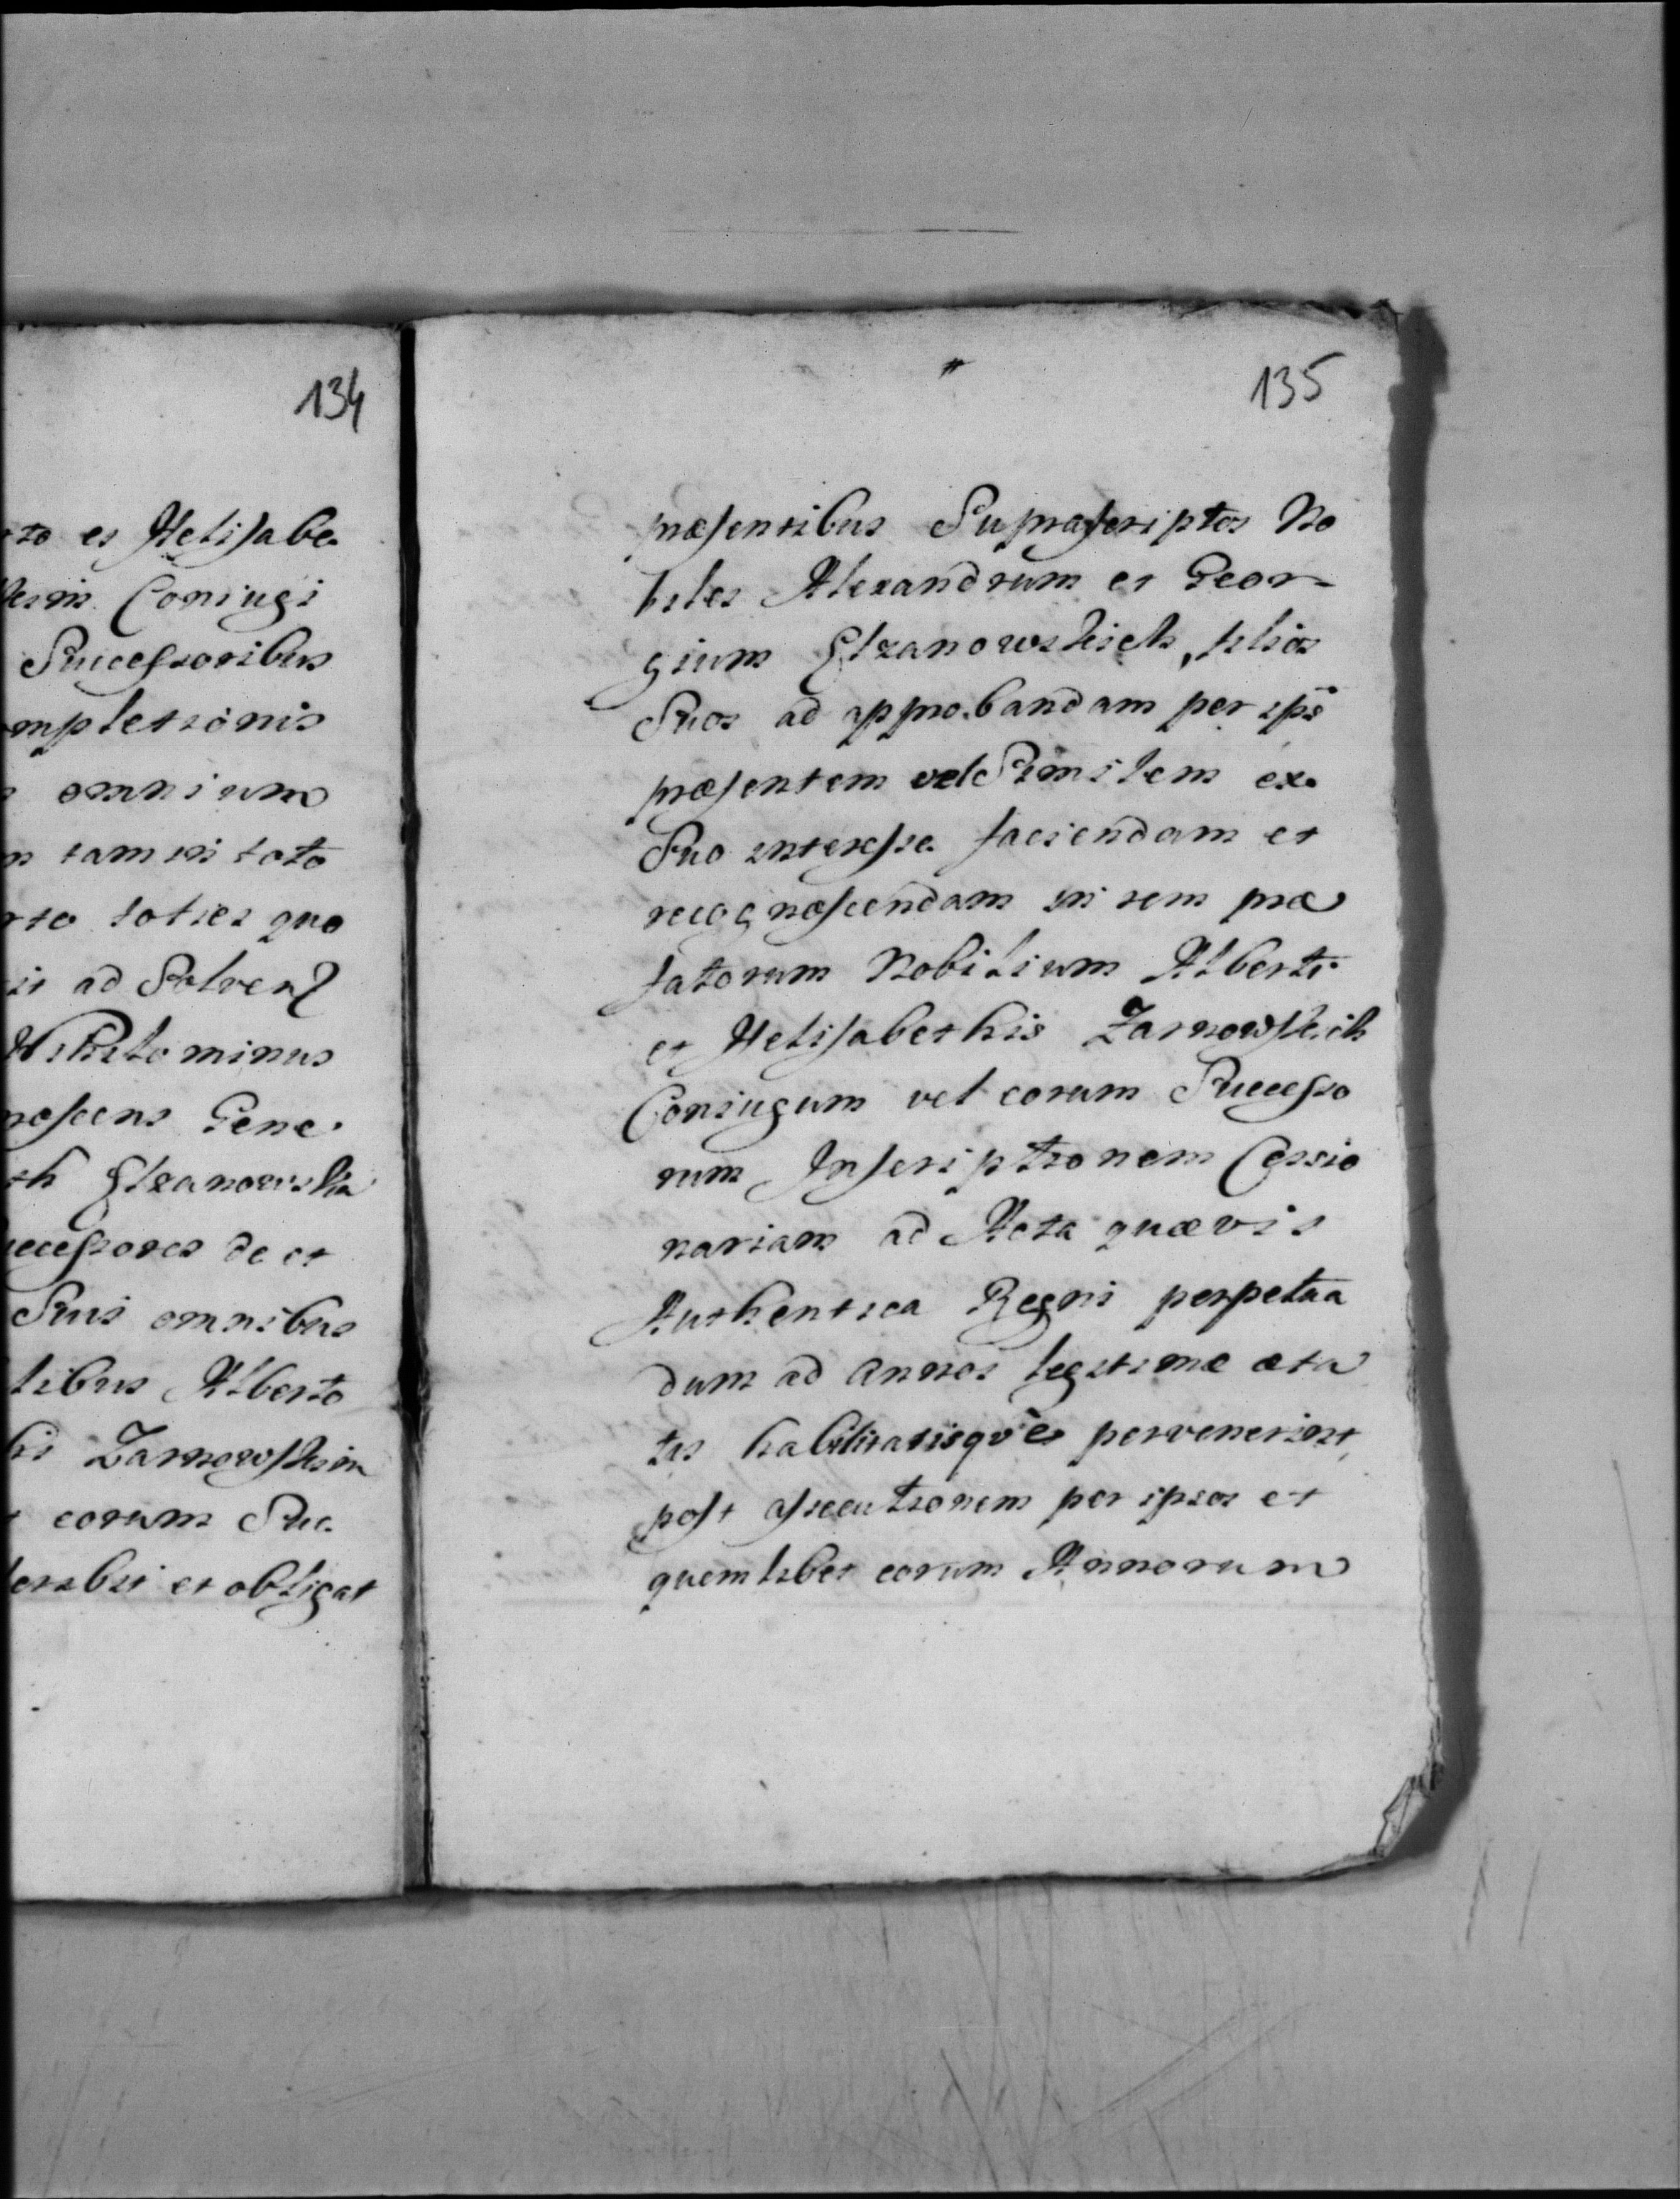 134
to et Helisabe
Coniugi
Successoribus
mpletionis
omnium
tam in toto
toties quo
ad Solvend
Nihilominus
noscens Gene
th Elzanowska
uccessores de et
Suis omnibus
libus Alberto
Zarnowskim
eorum Suc
et obligat
135
præsentibus Suprascriptos No
biles Alexandrum et Geor-
gium Elzanowskich, filios
Suos ad approbandam per ips̃
præsentem vel Similem ex
Suo interesse faciendam et
recognoscendam in rem præ
fatorum Nobilium Alberti
et Helisabethis Zarnowskich
Coniugum vel eorum Successo
rum Inscriptionem Cessio
nariam ad Acta quævis
Authentica Regni perpetua
dum ad annos legitimæ æta
tis habilitatisquè pervenerint,
post assecutionem per ipsos et
quemlibet eorum Annorum